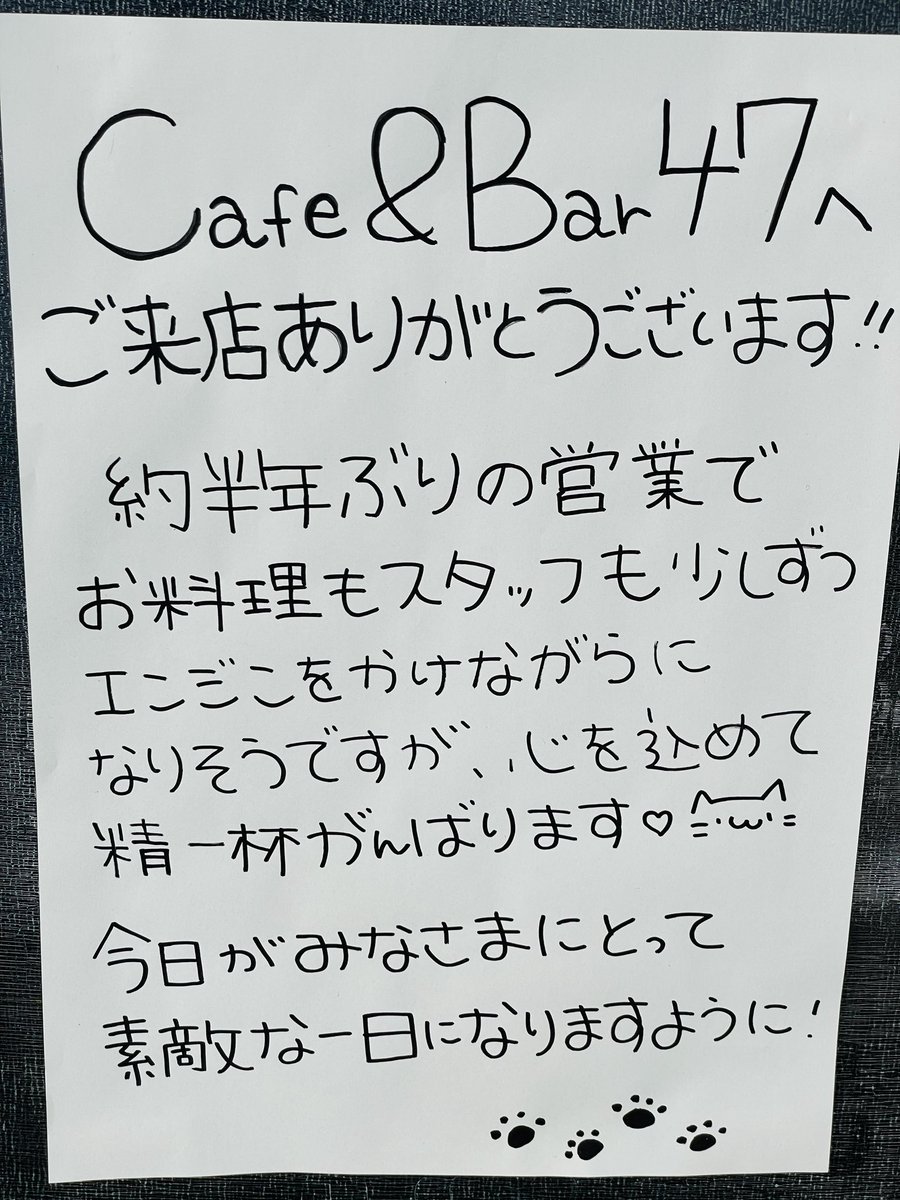 Cafe&Bar47へ
ご来店ありがとうございます!!
約半年ぶりの営業で
お料理もスタッフも少しずつ
エンジンをかけながらに
なりそうですが、心を込めて
精一杯がんばります♡ =･ω･=
今日がみなさまにとって
素敵な一日になりますように!